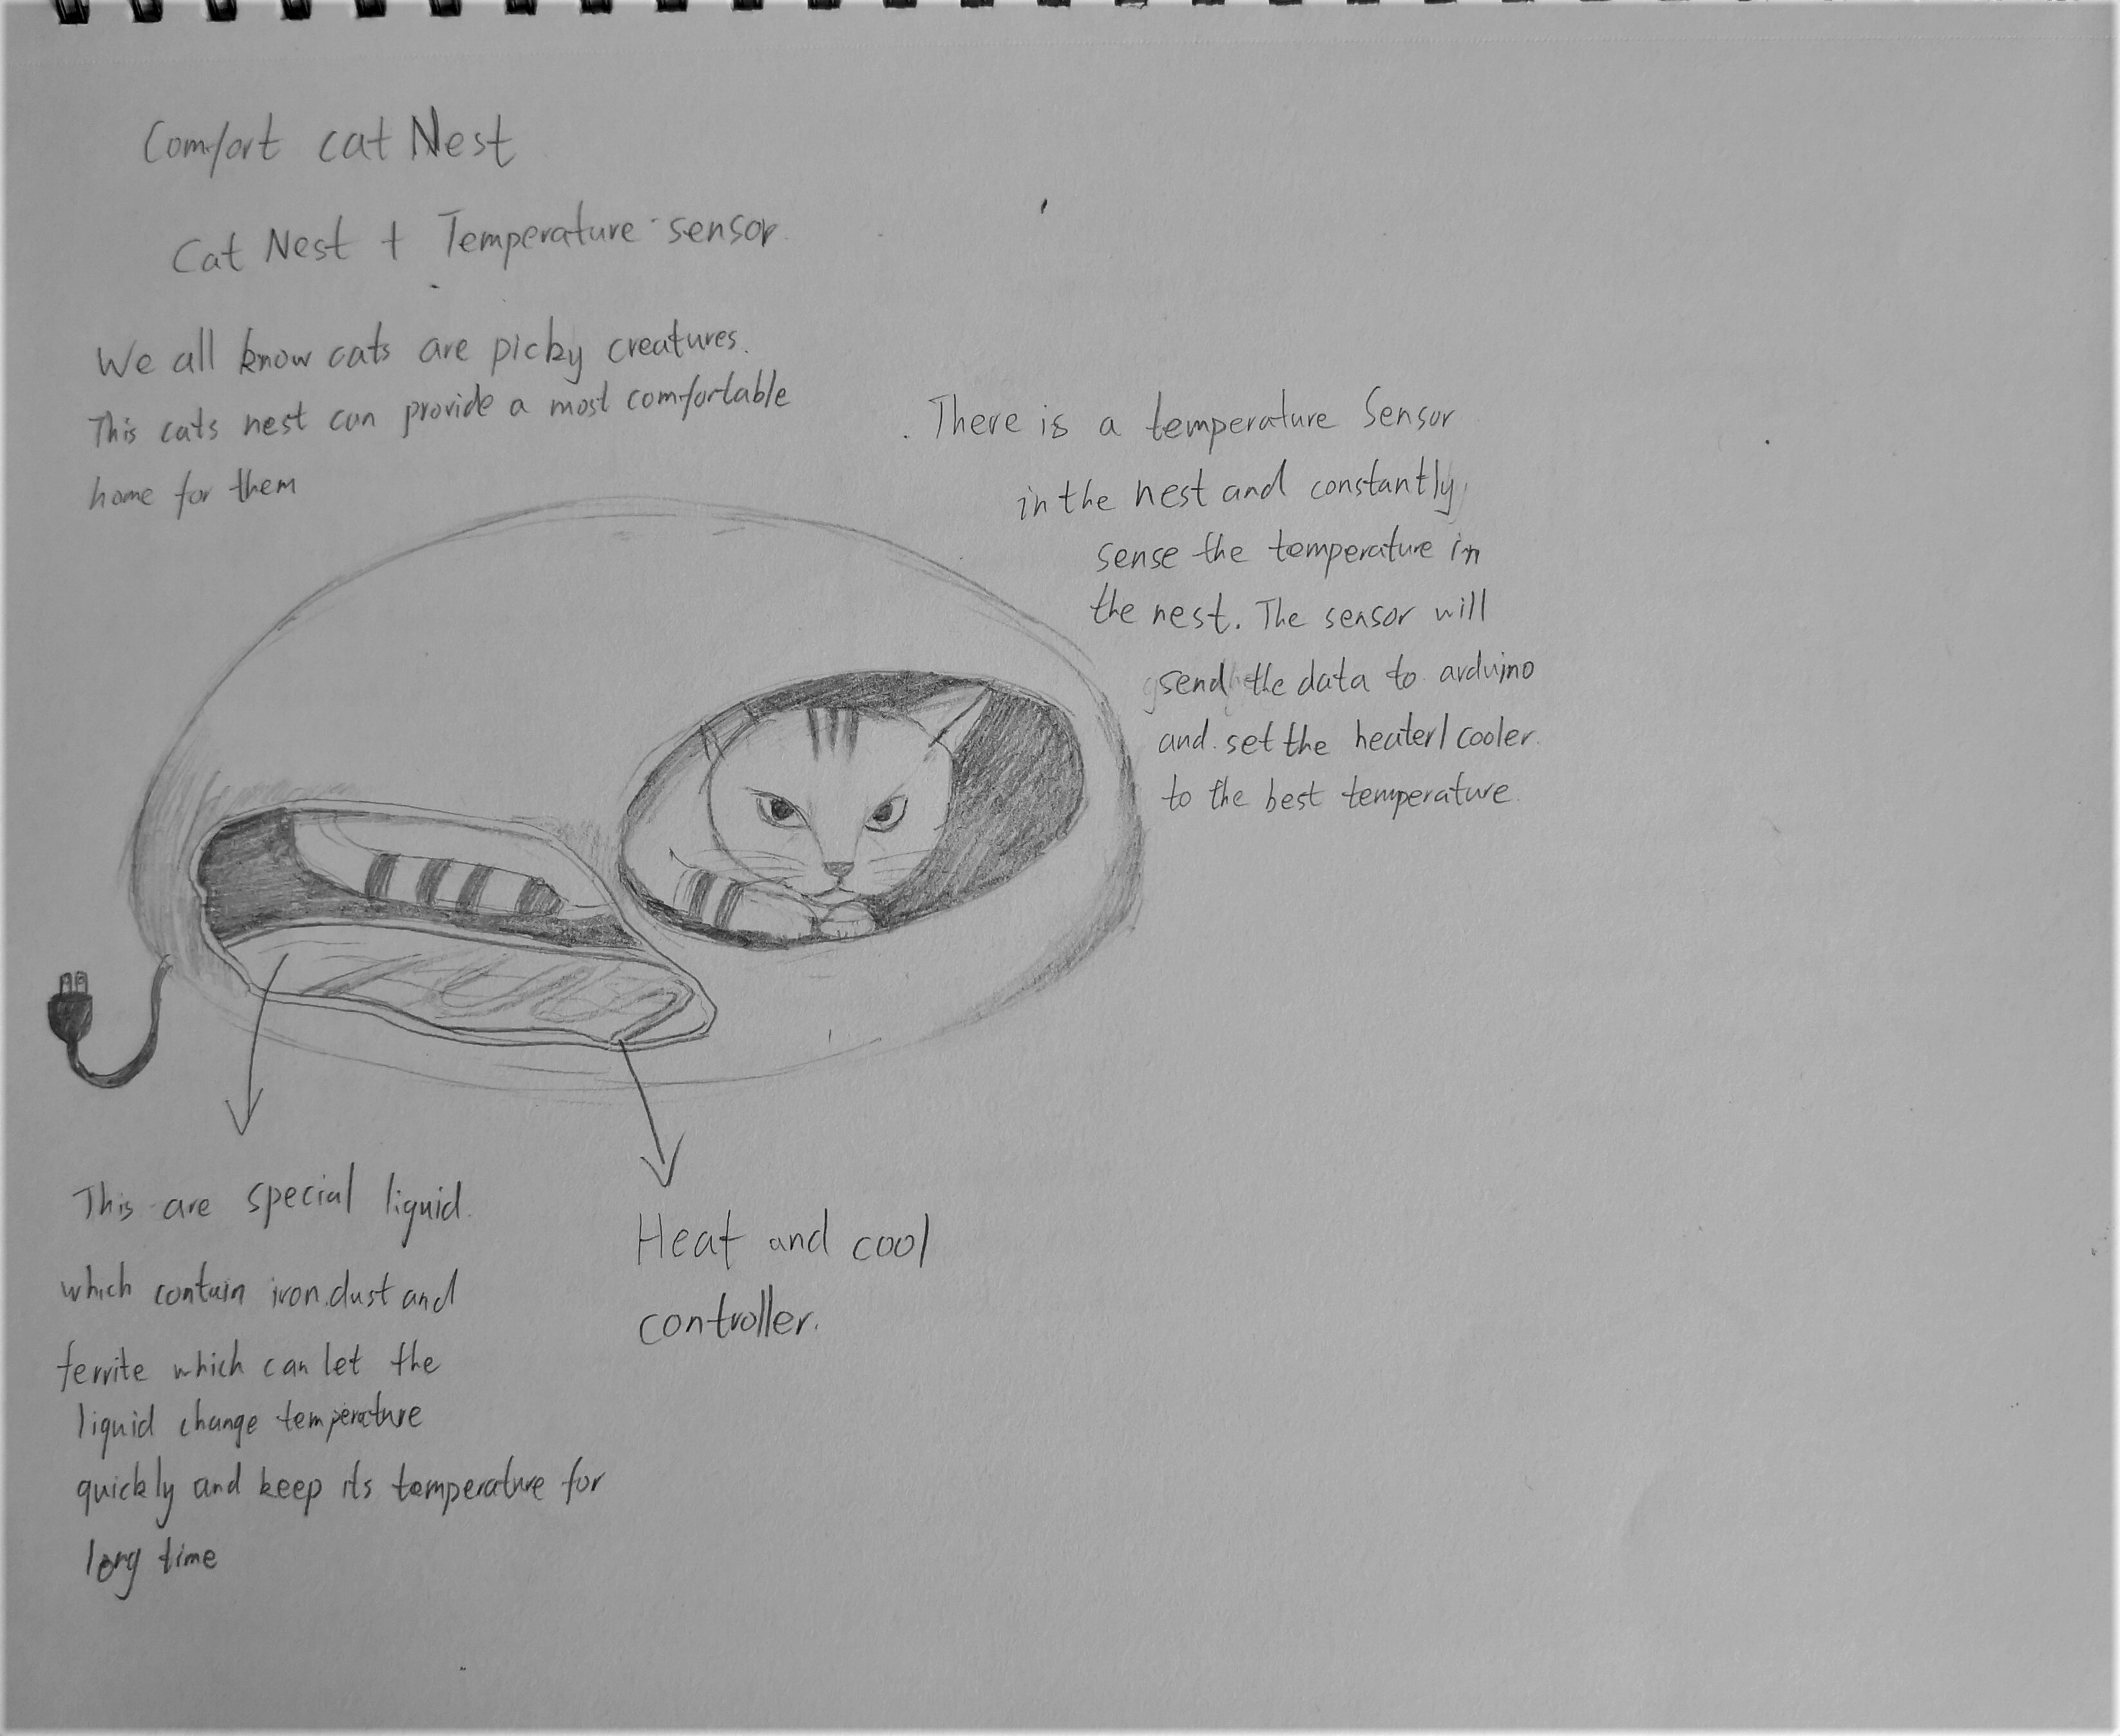 Comfort cat Nest
Cat Nest + Temperature sensor
We all know cats are picky creatures.
This cats nest can provide a most comfortable
home for them
There is a temperature Sensor
in the nest and constantly
sense the temperature in
the nest. The sensor will
send the data to arduino
and set the heater/cooler
to the best temperature
This are special liquid.
which contain iron dust and
ferrite which can let the
liquid change temperature
quickly and keep its temperature for
long time
Heat and cool
controller.